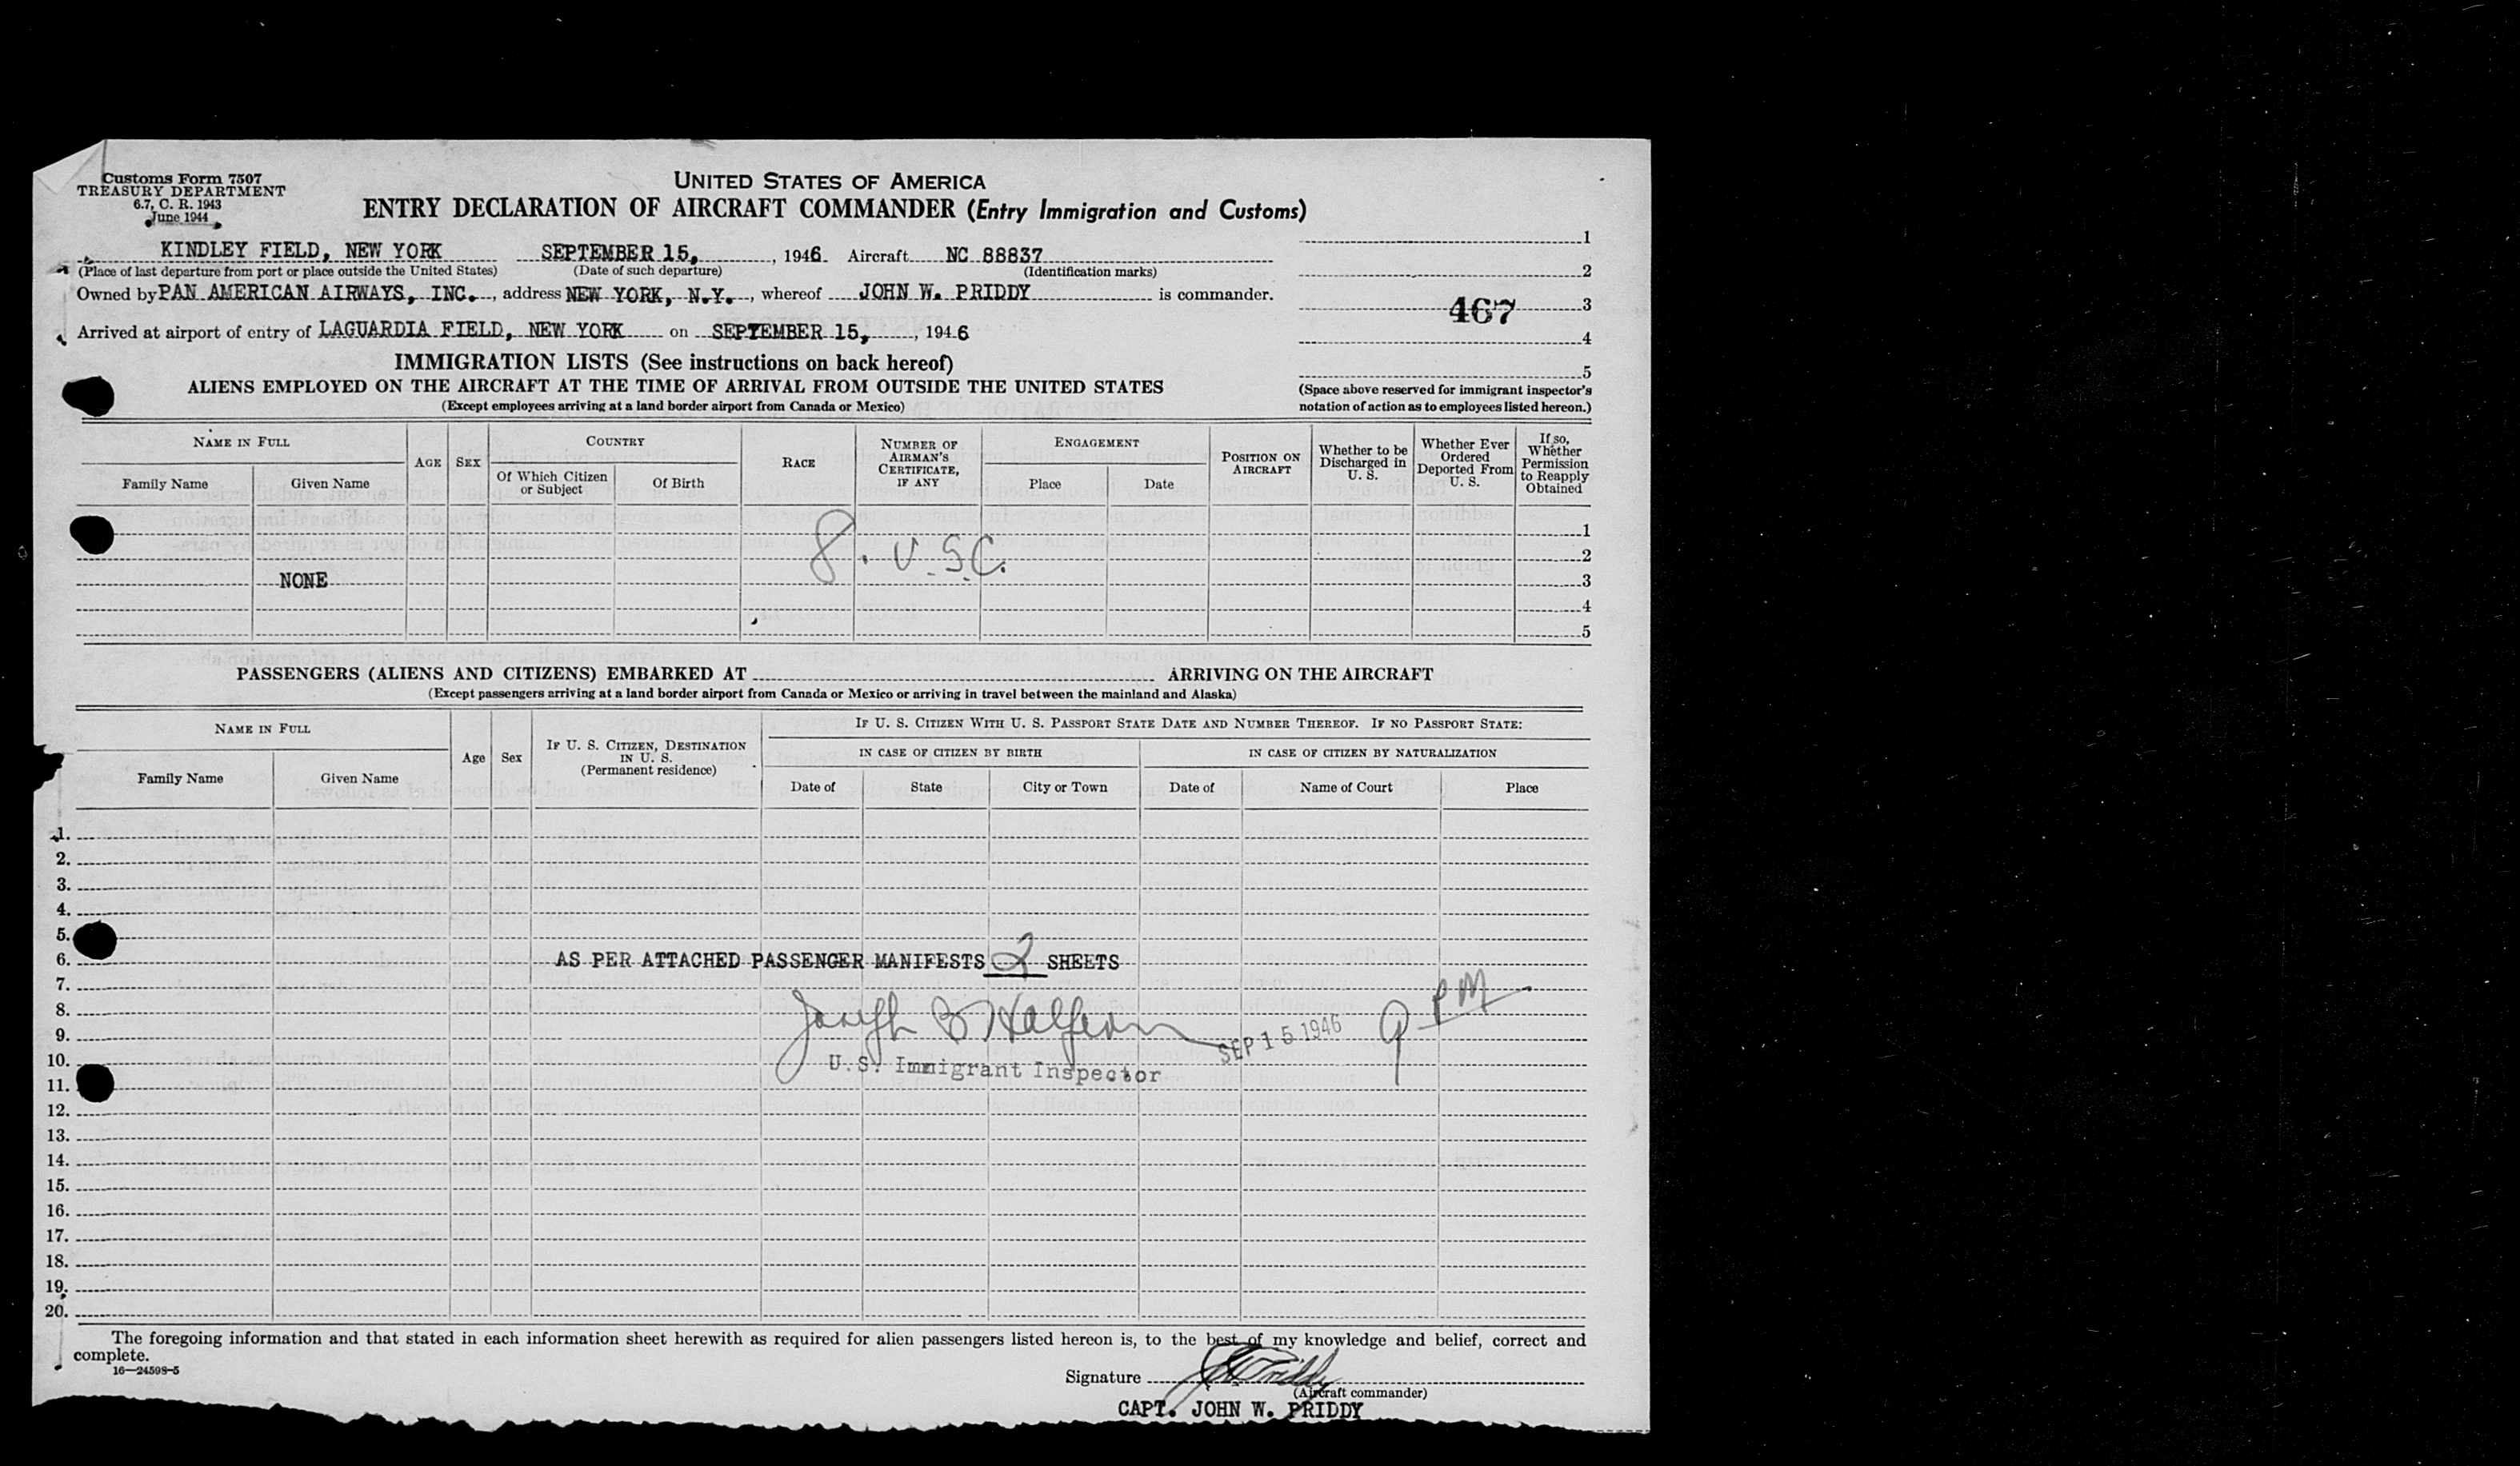 Customs Form 7507
TREASURY DEPARTMENT
6.7, C. R. 1943
June 1944
UNITED STATES OF AMERICA
ENTRY DECLARATION OF AIRCRAFT COMMANDER (Entry Immigration and Customs)
KINDLEY FIELD, NEW YORK SEPTEMBER 15, , 1946 Aircraft NC 88837
(Place of last departure from port or place outside the United States) (Date of such departure) (Identification marks)
Owned by PAN AMERICAN AIRWAYS, INC. , address NEW YORK, N.Y. , whereof JOHN W. PRIDDY is commander.
Arrived at airport of entry of LAGUARDIA FIELD, NEW YORK on SEPTEMBER 15, , 1946
1
2
467 3
4
5
(Space above reserved for immigrant inspector's
notation of action as to employees listed hereon.)
IMMIGRATION LISTS (See instructions on back hereof)
ALIENS EMPLOYED ON THE AIRCRAFT AT THE TIME OF ARRIVAL FROM OUTSIDE THE UNITED STATES
(Except employees arriving at a land border airport from Canada or Mexico)
NAME IN FULL
Family Name Given Name
AGE SEX
COUNTRY
Of Which Citizen or Subject Of Birth
RACE
NUMBER OF AIRMAN'S CERTIFICATE, IF ANY
ENGAGEMENT
Place Date
POSITION ON AIRCRAFT
Whether to be Discharged in U. S.
Whether Ever Ordered Deported From U. S.
If so, Whether Permission to Reapply Obtained
1
8. U.S.C. 2
NONE 3
4
5
PASSENGERS (ALIENS AND CITIZENS) EMBARKED AT ARRIVING ON THE AIRCRAFT
(Except passengers arriving at a land border airport from Canada or Mexico or arriving in travel between the mainland and Alaska)
NAME IN FULL
Family Name Given Name
Age Sex
IF U. S. CITIZEN, DESTINATION IN U. S.
(Permanent residence)
IF U. S. CITIZEN WITH U. S. PASSPORT STATE DATE AND NUMBER THEREOF. IF NO PASSPORT STATE:
IN CASE OF CITIZEN BY BIRTH IN CASE OF CITIZEN BY NATURALIZATION
Date of State City or Town Date of Name of Court Place
1.
2.
3.
4.
5.
6. AS PER ATTACHED PASSENGER MANIFESTS 2 SHEETS
7.
8. Joseph B Halpern 9 PM
9. SEP 15 1946
10. U.S. Immigrant Inspector
11.
12.
13.
14.
15.
16.
17.
18.
19.
20.
The foregoing information and that stated in each information sheet herewith as required for alien passengers listed hereon is, to the best of my knowledge and belief, correct and
complete.
16—24598-5
Signature JW Priddy
(Aircraft commander)
CAPT. JOHN W. PRIDDY